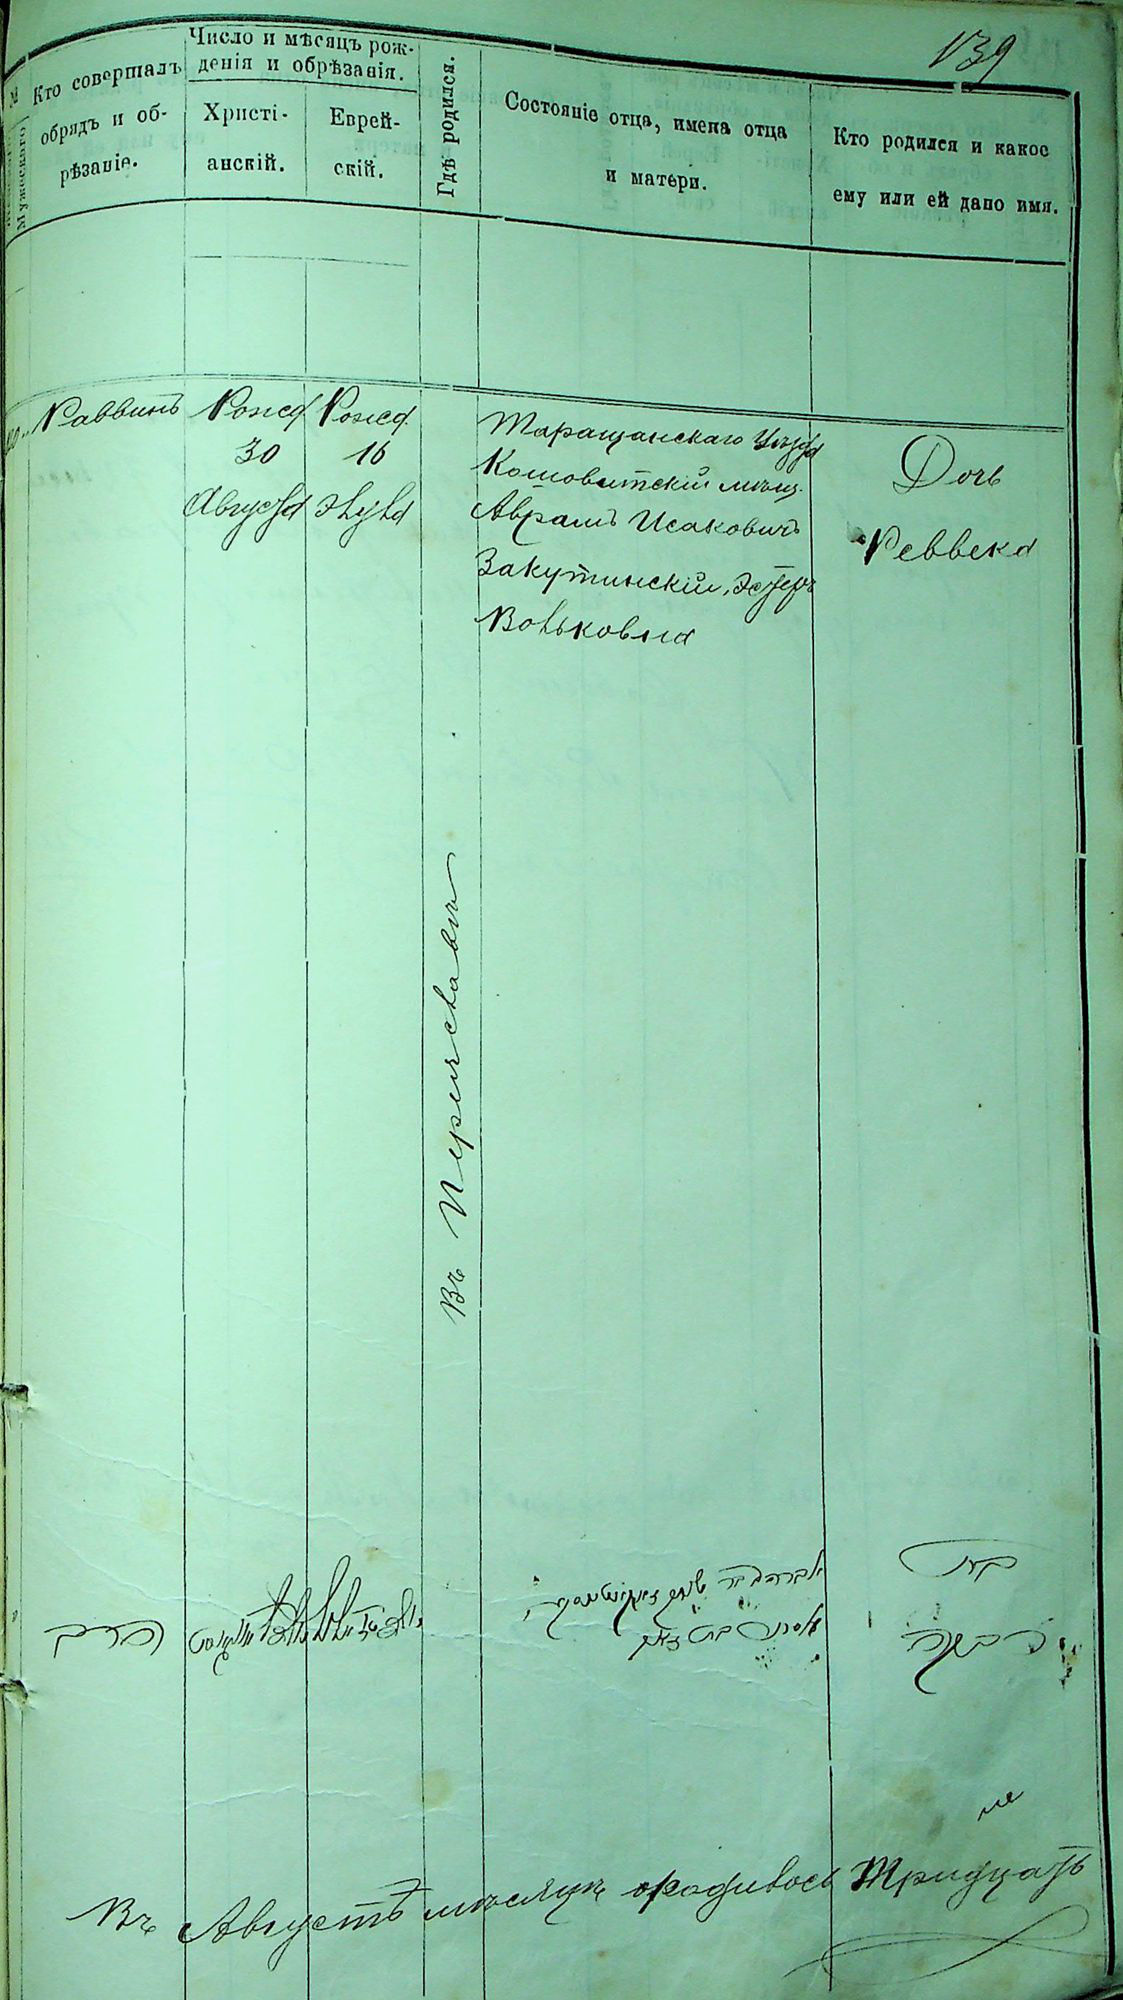 139
№
Мужескаго
Кто совершалъ
обрядъ и об-
рѣзаніе.
Число и мѣсяцъ рож-
денія и обрѣзанія.
Христі-
анскій.
Еврей-
скій.
Гдѣ родился.
Состояніе отца, имена отца
и матери.
Кто родился и какое
ему или ей дано имя.
Раввинъ
Рожд
30
Августа
Рожд.
16
Элула
Въ Переяславѣ
Таращанскаго Уѣзда
Кошоватскій мѣщ.
Аврамъ Исаковичъ
Закутинскій, Эстеръ
Вольковна
Дочь
Реввека
הרב
בת
רבקה
Въ Августѣ мѣсяцѣ родилось Тридцать